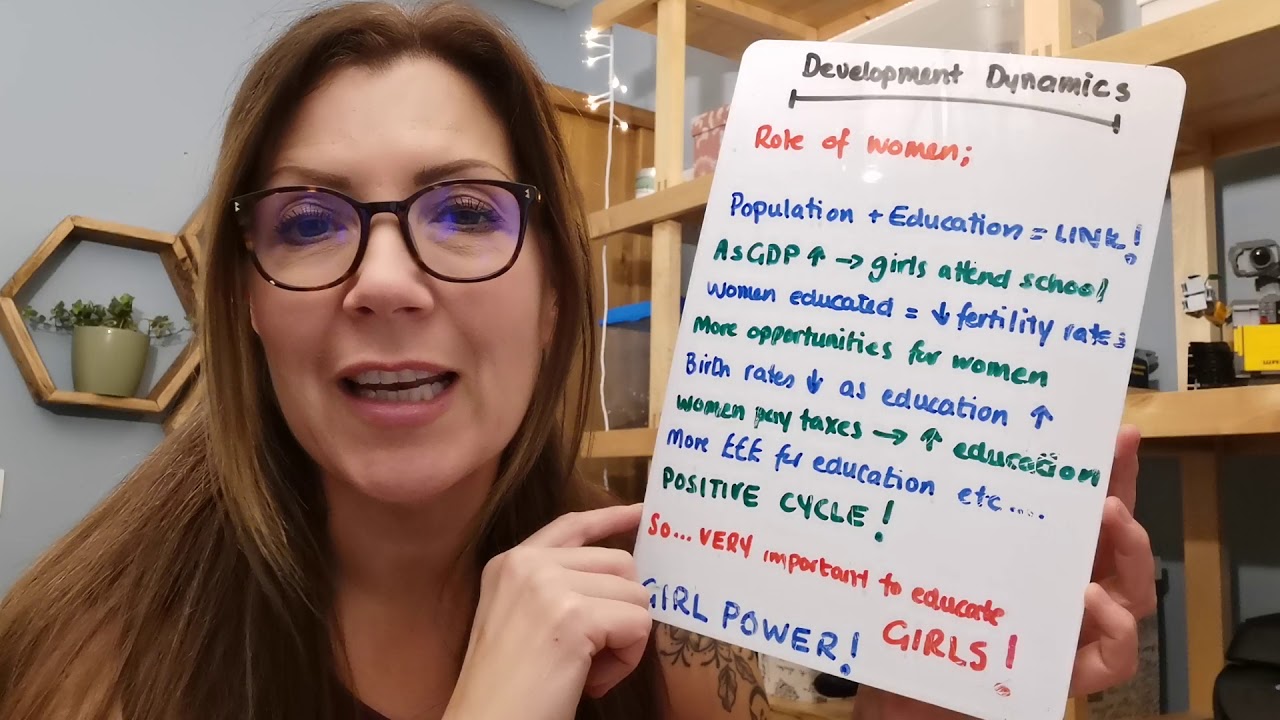 Development Dynamics
Role of women;
Population + Education = LINK!
As GDP ↑ → girls attend school!
Women educated = ↓ fertility rate;
More opportunities for women
Birth rates ↓ as education ↑
Women pay taxes → ↑ education
More £££ for education etc.....
POSITIVE CYCLE!
So... VERY important to educate
GIRLS!
GIRL POWER!